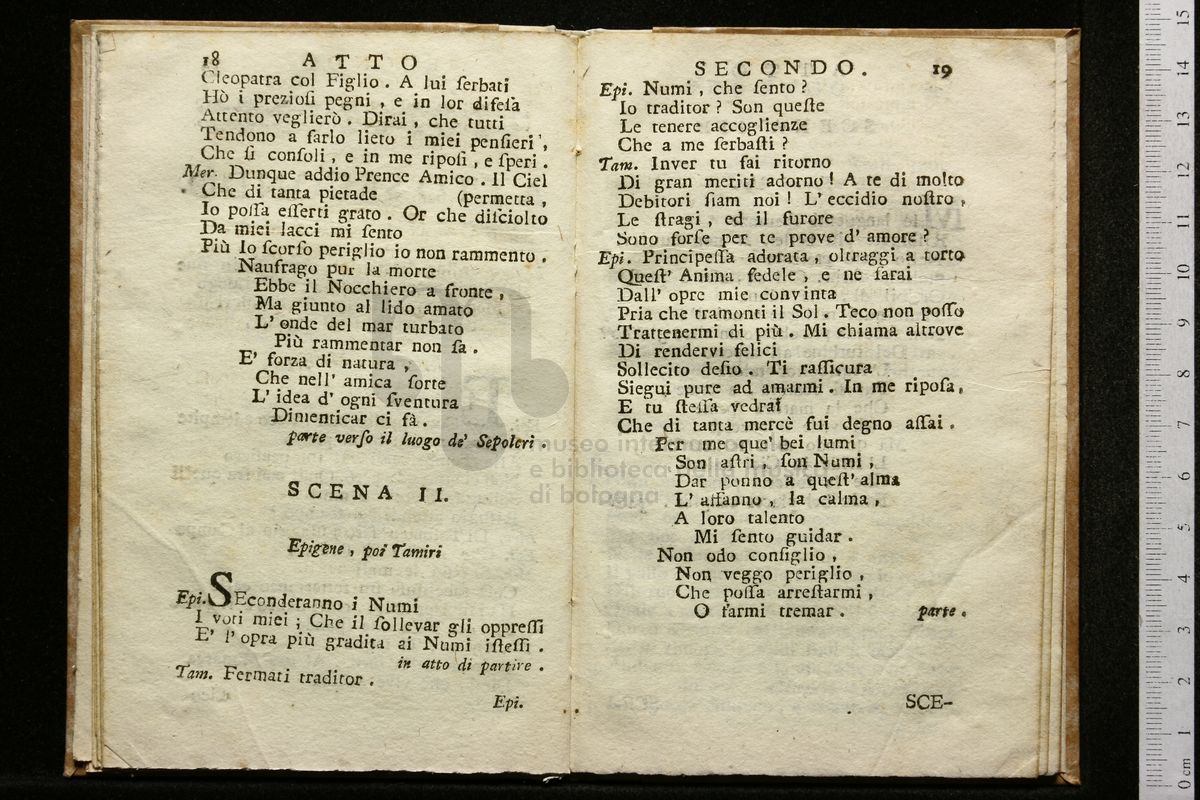 18 ATTO
Cleopatra col Figlio. A lui ſerbati
Hò i prezioſi pegni, e in lor difeſa
Attento veglierò. Dirai, che tutti
Tendono a farlo lieto i miei penſieri,
Che ſi conſoli, e in me ripoſi, e ſperi.
Mer. Dunque addio Prence Amico. Il Ciel
Che di tanta pietade (permetta,
Io poſſa eſſerti grato. Or che diſciolto
Da miei lacci mi ſento
Più lo ſcorſo periglio io non rammento.
Naufrago pur la morte
Ebbe il Nocchiero a fronte,
Ma giunto al lido amato
L' onde del mar turbato
Più rammentar non ſa.
E' forza di natura,
Che nell' amica ſorte
L' idea d' ogni ſventura
Dimenticar ci fà.
parte verſo il luogo de' Sepolcri.
SCENA II.
Epigene, poi Tamiri
Epi. SEconderanno i Numi
I voti miei; Che il ſollevar gli oppreſſi
E' l' opra più gradita ai Numi iſteſſi.
in atto di partire.
Tam. Fermati traditor.
Epi.
SECONDO. 19
Epi. Numi, che ſento?
Io traditor? Son queſte
Le tenere accoglienze
Che a me ſerbaſti?
Tam. Inver tu fai ritorno
Di gran meriti adorno! A te di molto
Debitori ſiam noi! L' eccidio noſtro,
Le ſtragi, ed il furore
Sono forſe per te prove d' amore?
Epi. Principeſſa adorata, oltraggi a torto
Queſt' Anima fedele, e ne ſarai
Dall' opre mie convinta
Pria che tramonti il Sol. Teco non poſſo
Trattenermi di più. Mi chiama altrove
Di rendervi felici
Sollecito deſio. Ti raſſicura
Siegui pure ad amarmi. In me ripoſa,
E tu ſteſſa vedrai
Che di tanta mercè fui degno aſſai.
Per me que' bei lumi
Son aſtri, ſon Numi,
Dar ponno a queſt' alma
L' affanno, la calma,
A loro talento
Mi ſento guidar.
Non odo conſiglio,
Non veggo periglio,
Che poſſa arreſtarmi,
O farmi tremar. parte.
SCE-
museo inter
e biblioteca della musica
di bologna
15
14
13
12
11
10
9
8
7
6
5
4
3
2
1
0 cm